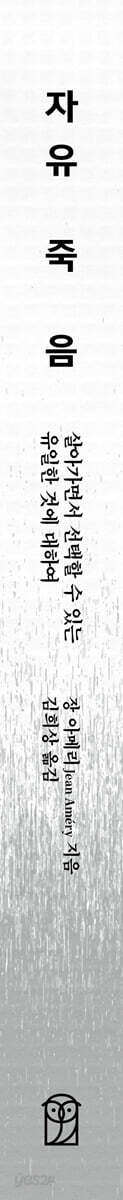 자유 죽음
살아가면서 선택할 수 있는
유일한 것에 대하여
장 아메리 Jean Améry 지음
김희상 옮김
yes24